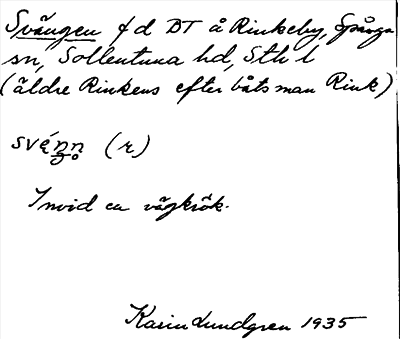 Svängen f d BT å Rinkeby, Spånga
sn, Sollentuna hd, Sth l
(äldre Rinkens efter båtsman Rink)
(r)
Invid en vägkrök.
Karin Lundgren 1935